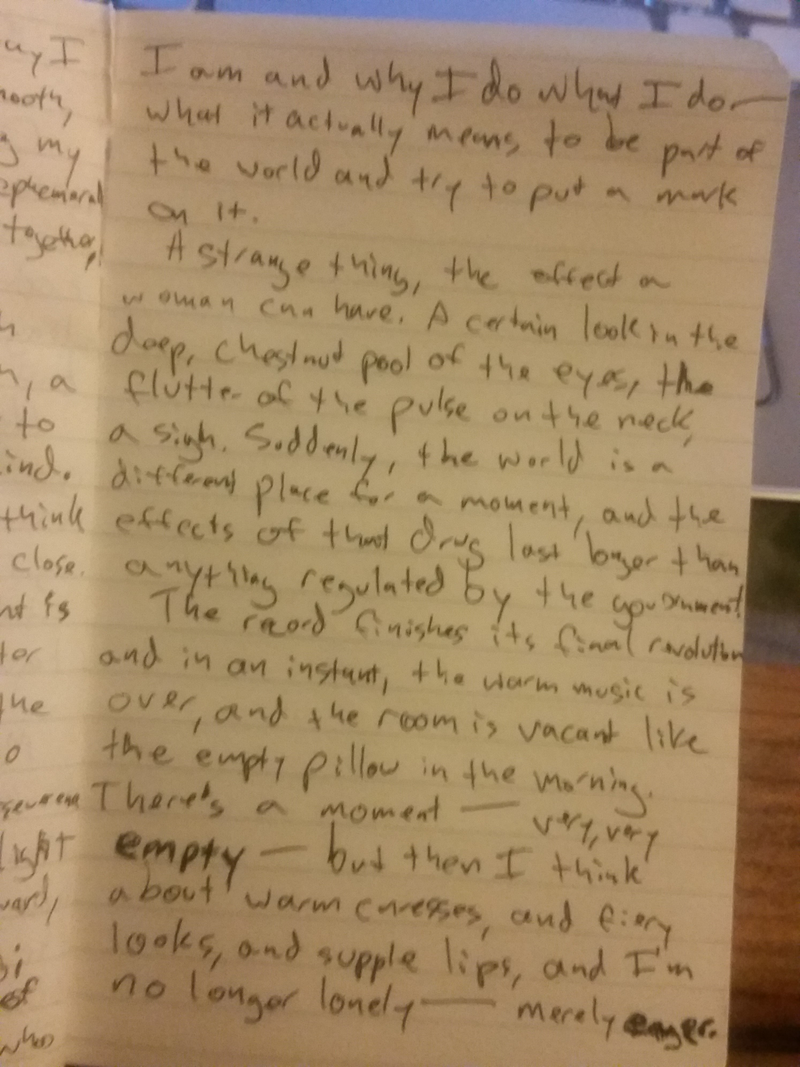 uy I
nooth,
g my
ephemeral
together,
h
n, a
to
ind.
think
close.
nt is
ter
the
o
light
ward,
of
who
I am and why I do what I do —
what it actually means, to be part of
the world and try to put a mark
on it.
A strange thing, the effect a
woman can have. A certain look in the
deep, chestnut pool of the eyes, the
flutter of the pulse on the neck,
a sigh. Suddenly, the world is a
different place for a moment, and the
effects of that drug last longer than
anything regulated by the government.
The record finishes its final revolution
and in an instant, the warm music is
over, and the room is vacant like
the empty pillow in the morning.
There's a moment — very, very
empty — but then I think
about warm caresses, and fiery
looks, and supple lips, and I'm
no longer lonely — merely eager.